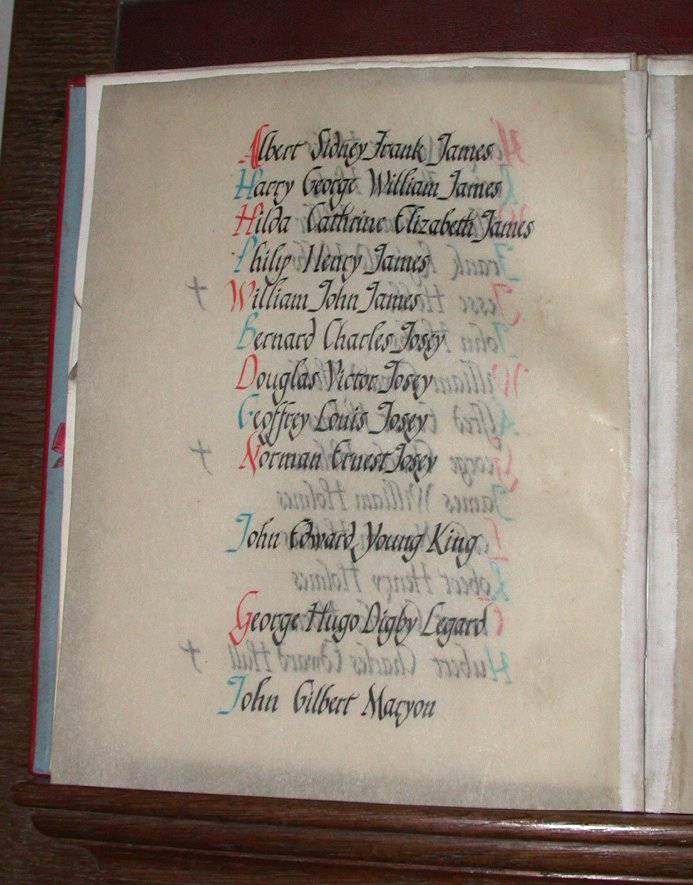 Albert Sidney Frank James
Harry George William James
Hilda Cathrine Elizabeth James
Philip Henry James
William John James
Bernard Charles Josey
Douglas Victor Josey
Geoffrey Louis Josey
Norman Ernest Josey
John Edward Young King
George Hugo Digby Legard
John Gilbert Maryon